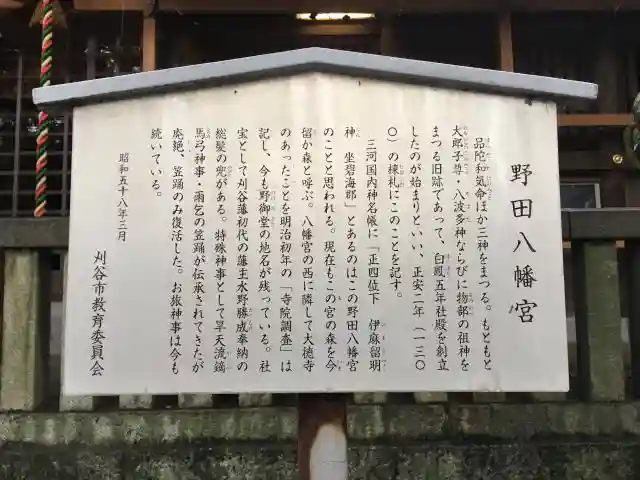 野田八幡宮
品陀和気命ほか三神をまつる。もともと
大郎子尊・八波多神ならびに物部の祖神を
まつる旧跡であって、白鳳五年社殿を創立
したのが始まりといい、正安二年(一三〇
〇)の棟札にこのことを記す。
三河国内神名帳に「正四位下 伊麻留明
神 坐碧海郡」とあるのはこの野田八幡宮
のことと思われる。現在もこの宮の森を今
留か森と呼ぶ。八幡宮の西に隣して大徳寺
のあったことを明治初年の「寺院調査」は
記し、今も野御堂の地名が残っている。社
宝として刈谷藩初代の藩主水野勝成奉納の
総髪の兜がある。特殊神事として早天流鏑
馬弓神事・雨乞の笠踊が伝承されてきたが
廃絶、笠踊のみ復活した。お旅神事は今も
続いている。
昭和五十八年三月
刈谷市教育委員会